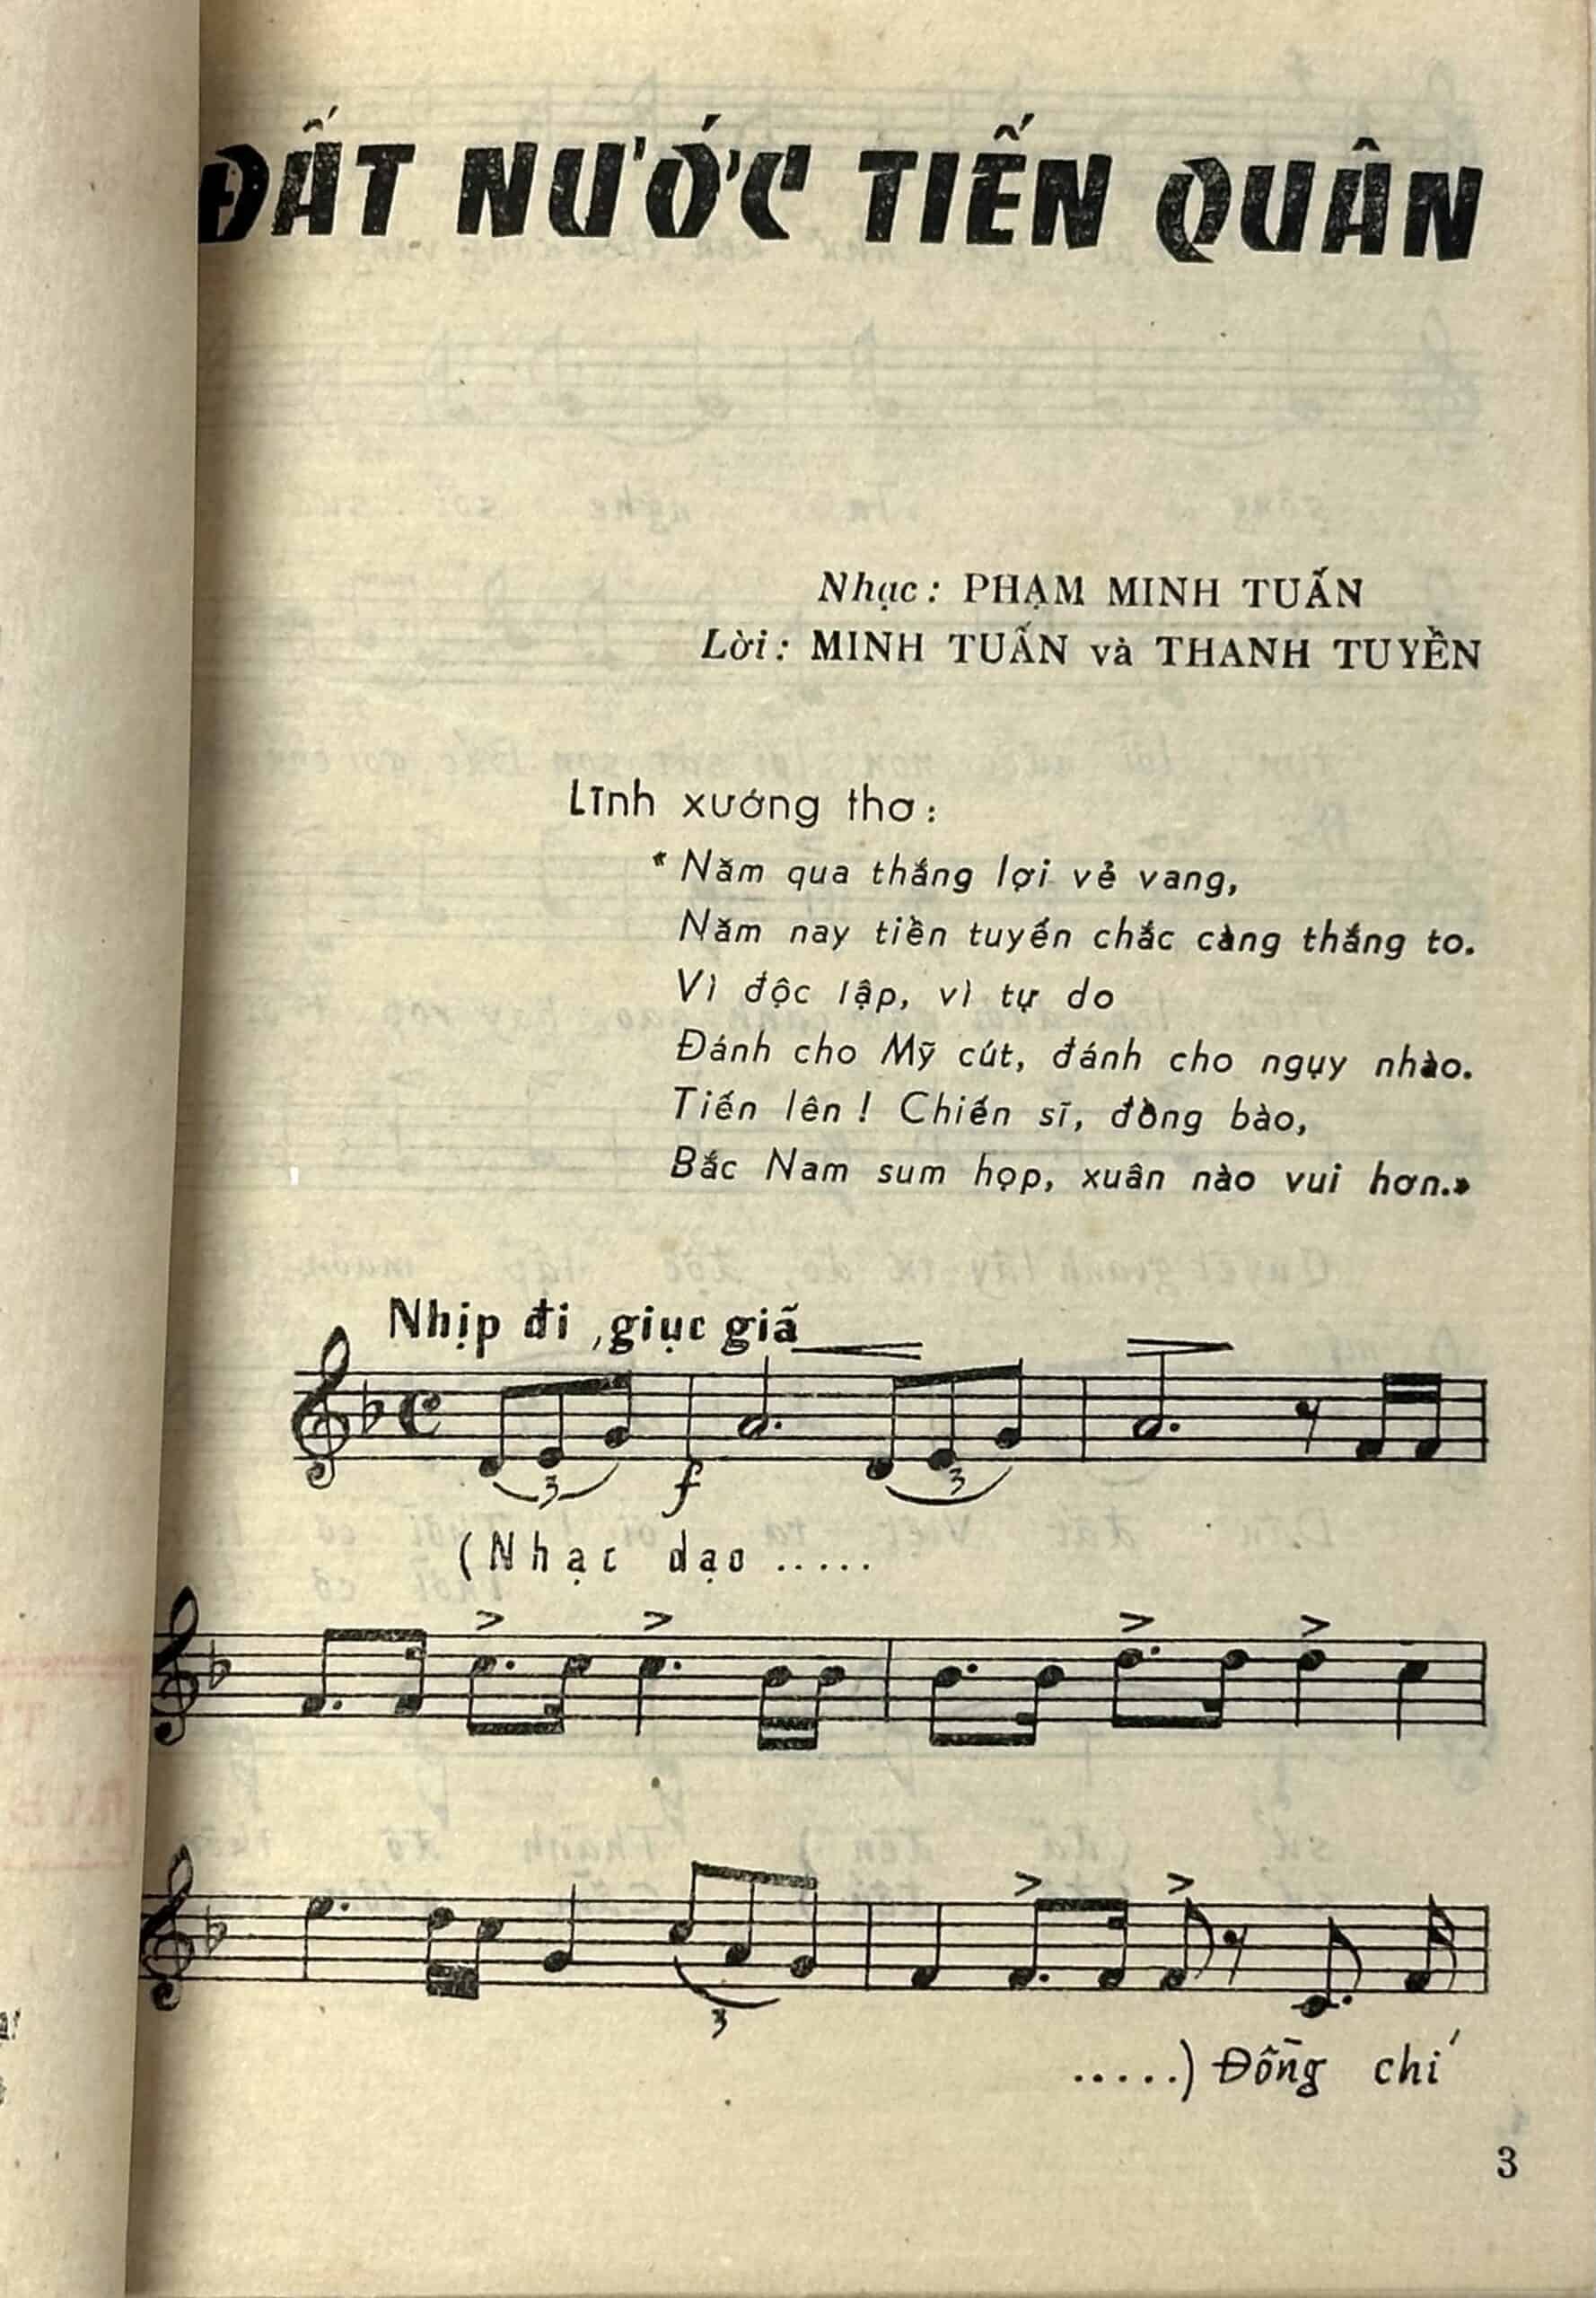 ĐẤT NƯỚC TIẾN QUÂN
Nhạc : PHẠM MINH TUẤN
Lời : MINH TUẤN và THANH TUYỀN
Lĩnh xướng thơ :
« Năm qua thắng lợi vẻ vang,
Năm nay tiền tuyến chắc càng thắng to.
Vì độc lập, vì tự do
Đánh cho Mỹ cút, đánh cho ngụy nhào.
Tiến lên ! Chiến sĩ, đồng bào,
Bắc Nam sum họp, xuân nào vui hơn.»
Nhịp đi , giục giã
3 f 3
(Nhạc dạo .....
3
.....) Đồng chí
3